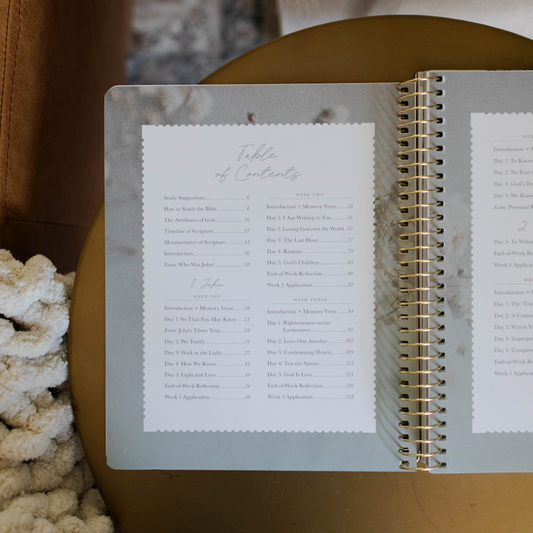 Table
of Contents
Study Suggestions 6
How to Study the Bible 8
The Attributes of God 10
Timeline of Scripture 12
Metanarrative of Scripture 14
Introduction 16
Extra: Who Was John? 18
1 John
WEEK ONE
Introduction + Memory Verse 20
Day 1: So That You May Know 23
Extra: John's Three Tests 28
Day 2: We Testify 31
Day 3: Walk in the Light 37
Day 4: How We Know 43
Day 5: Light and Love 49
End-of-Week Reflection 54
Week 1 Application 56
WEEK TWO
Introduction + Memory Verse 58
Day 1: I Am Writing to You 61
Day 2: Loving God over the World 67
Day 3: The Last Hour 73
Day 4: Remain 79
Day 5: God's Children 85
End-of-Week Reflection 90
Week 2 Application 92
WEEK THREE
Introduction + Memory Verse 94
Day 1: Righteousness versus
Lawlessness 97
Day 2: Love One Another 103
Day 3: Condemning Hearts 109
Day 4: Test the Spirits 115
Day 5: God Is Love 121
End-of-Week Reflection 126
Week 3 Application 128
Introduction +
Day 1: To Know
Day 2: No Fear
Day 3: God's
Day 4: We Know
Extra: Personal
2
Day 5: To
End-of-Week
Week 4 Application
Introduction +
Day 1: The
Day 2: A
Day 3: Watch
Day 4:
Day 5:
End-of-Week
Week 5 Application